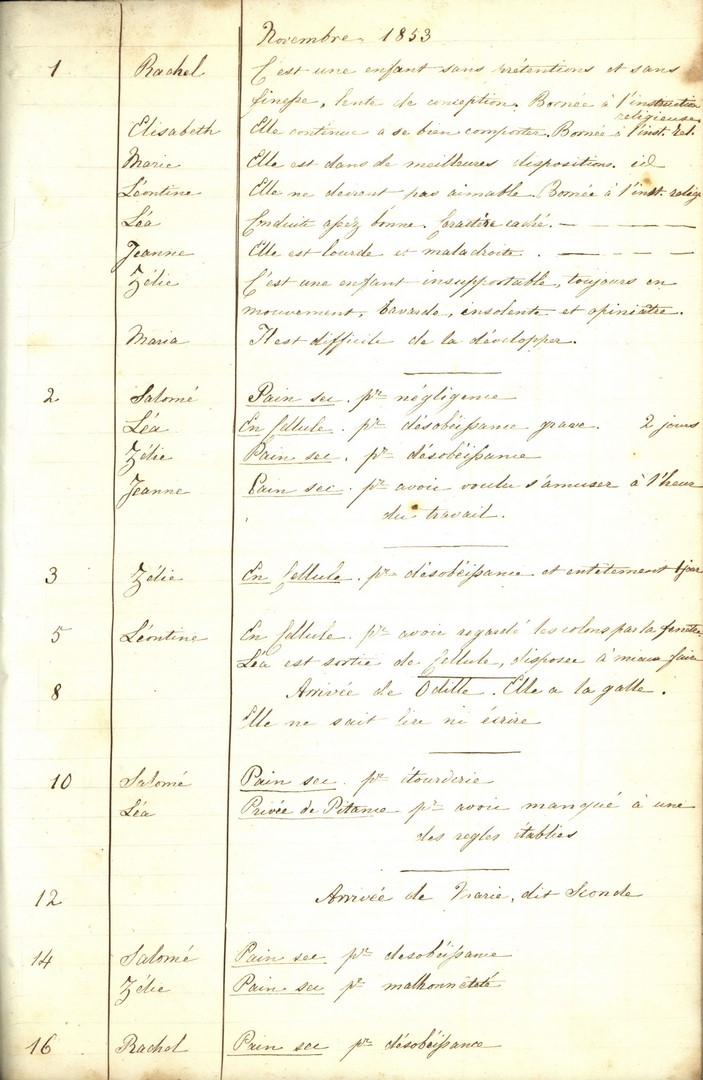 Novembre 1853
1 Rachel C'est une enfant sans prétentions et sans
finesse, lente de conception. Bornée à l'instruction
religieuse
Elisabeth Elle continue a se bien comporter. Bornée à l'inst. rel.
Marie Elle est dans de meilleures dispositions. id
Léontine Elle ne devient pas aimable. Bornée à l'inst. relig
Léa Conduite assez bonne. Caractère caché. — — — —
Jeanne Elle est lourde et maladroite. — — — —
Zélie C'est une enfant insupportable, toujours en
mouvement, bavarde, insolente et opiniâtre.
Maria Il est difficile de la développer.
2 Salomé Pain sec. pr négligence
Léa En Cellule. pr désobéissance grave. 2 jours
Zélie Pain sec. pr désobéissance
Jeanne Pain sec. pr avoir voulu s'amuser à l'heur
du travail.
3 Zélie En Cellule. pr désobéissance et entêtement 1 jour
5 Léontine En Cellule. pr avoir regardé les colons par la fenêtre
Léa est sortie de Cellule, disposée à mieux faire
8 Arrivée de Odille. Elle a la galle.
Elle ne sait lire ni écrire
10 Salomé Pain sec. pr étourderie
Léa Privée de Pitance pr avoir manqué à une
des regles établies
12 Arrivée de Marie, dit Seconde
14 Salomé Pain sec pr desobéissance
Zélie Pain sec pr malhonnêteté
16 Rachel Pain sec pr désobéissance